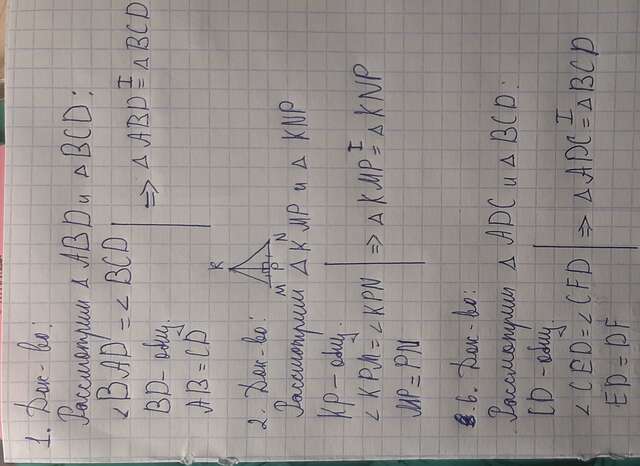 1. Док-во:
Рассмотрим △ ABD и △ BCD:
∠BAD = ∠BCD
BD - общ.
AB = CD
=> △ ABD =ᴵ △ BCD
2. Док-во:
K
M P N
Рассмотрим △ KMP и △ KNP
KP - общ.
∠ KPM = ∠ KPN
MP = PN
=> △ KMP =ᴵ △ KNP
6. Док-во:
Рассмотрим △ ADC и △ BCD:
CD - общ.
∠ CED = ∠ CFD
ED = DF
=> △ ADC =ᴵ △ BCD